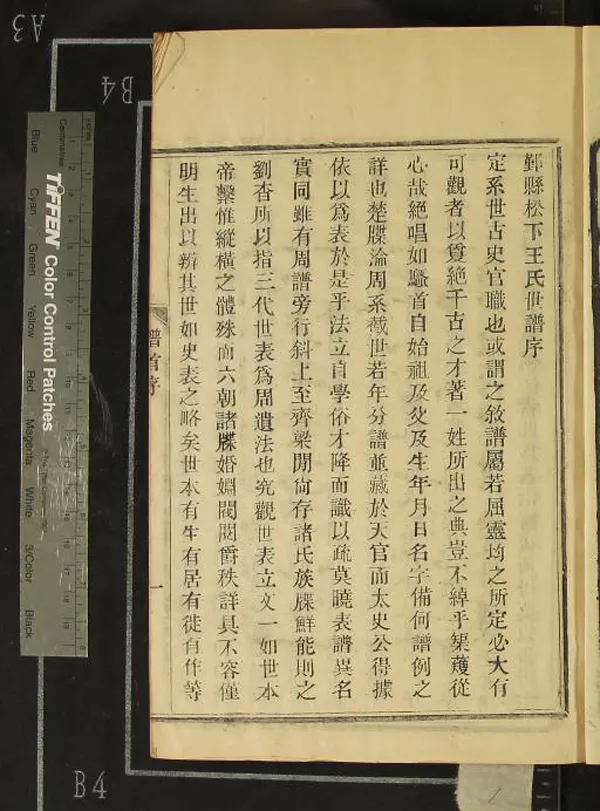 鄞縣松下王氏世譜序
定系世古史官職也或謂之敘譜屬若屈靈均之所定必大有
可觀者以貟絕千古之才著一姓所出之典豈不綽乎榘蒦從
心哉絕唱如騷首自始祖及父及生年月日名字備何譜例之
詳也楚牒淪周系薉世若年分譜並藏於天官而太史公得據
依以爲表於是乎法立自學俗才降而識以疏莫曉表譜異名
實同雖有周譜旁行斜上至齊梁閒尙存諸氏族牒鮮能則之
劉杳所以指三代世表爲周遺法也究觀世表立文一如世本
帝繫惟縱橫之體殊而六朝諸牒婚姻閥閱爵秩詳具不容僅
明生出以辨其世如史表之略矣世本有生有居有徙有作等
譜首序
一
TIFFEN Color Control Patches
Centimetres
Blue
Cyan
Green
Yellow
Red
Magenta
White
3/Color
Black
A3
B4
B4